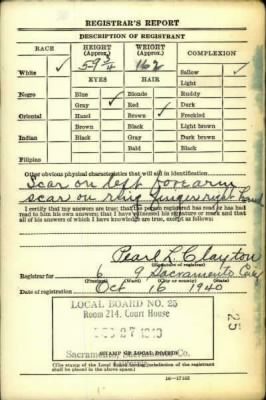 REGISTRAR'S REPORT
DESCRIPTION OF REGISTRANT
RACE HEIGHT (Approx.) WEIGHT (Approx.) COMPLEXION
5-9 3/4 162
White ✓ Sallow ✓
EYES HAIR Light
Negro Blue Blonde Ruddy
Gray ✓ Red Dark
Oriental Hazel Brown ✓ Freckled
Brown Black Light brown
Indian Black Gray Dark brown
Bald Black
Filipino
Other obvious physical characteristics that will aid in identification
Scar on left forearm
scar on ring finger right hand
I certify that my answers are true; that the person registered has read or has had
read to him his own answers; that I have witnessed his signature or mark and that
all of his answers of which I have knowledge are true, except as follows:
Pearl L. Clayton
(Signature of registrar)
Registrar for 6 9 Sacramento
(Precinct) (Ward) (City or county) (State)
Date of registration Oct 16 1940
LOCAL BOARD NO. 25
Room 214, Court House
27
Sacramento, Sacramento Co.
STAMP OF LOCAL BOARD
(The stamp of the Local Board having jurisdiction of the registrant
shall be placed in the above space.)
25